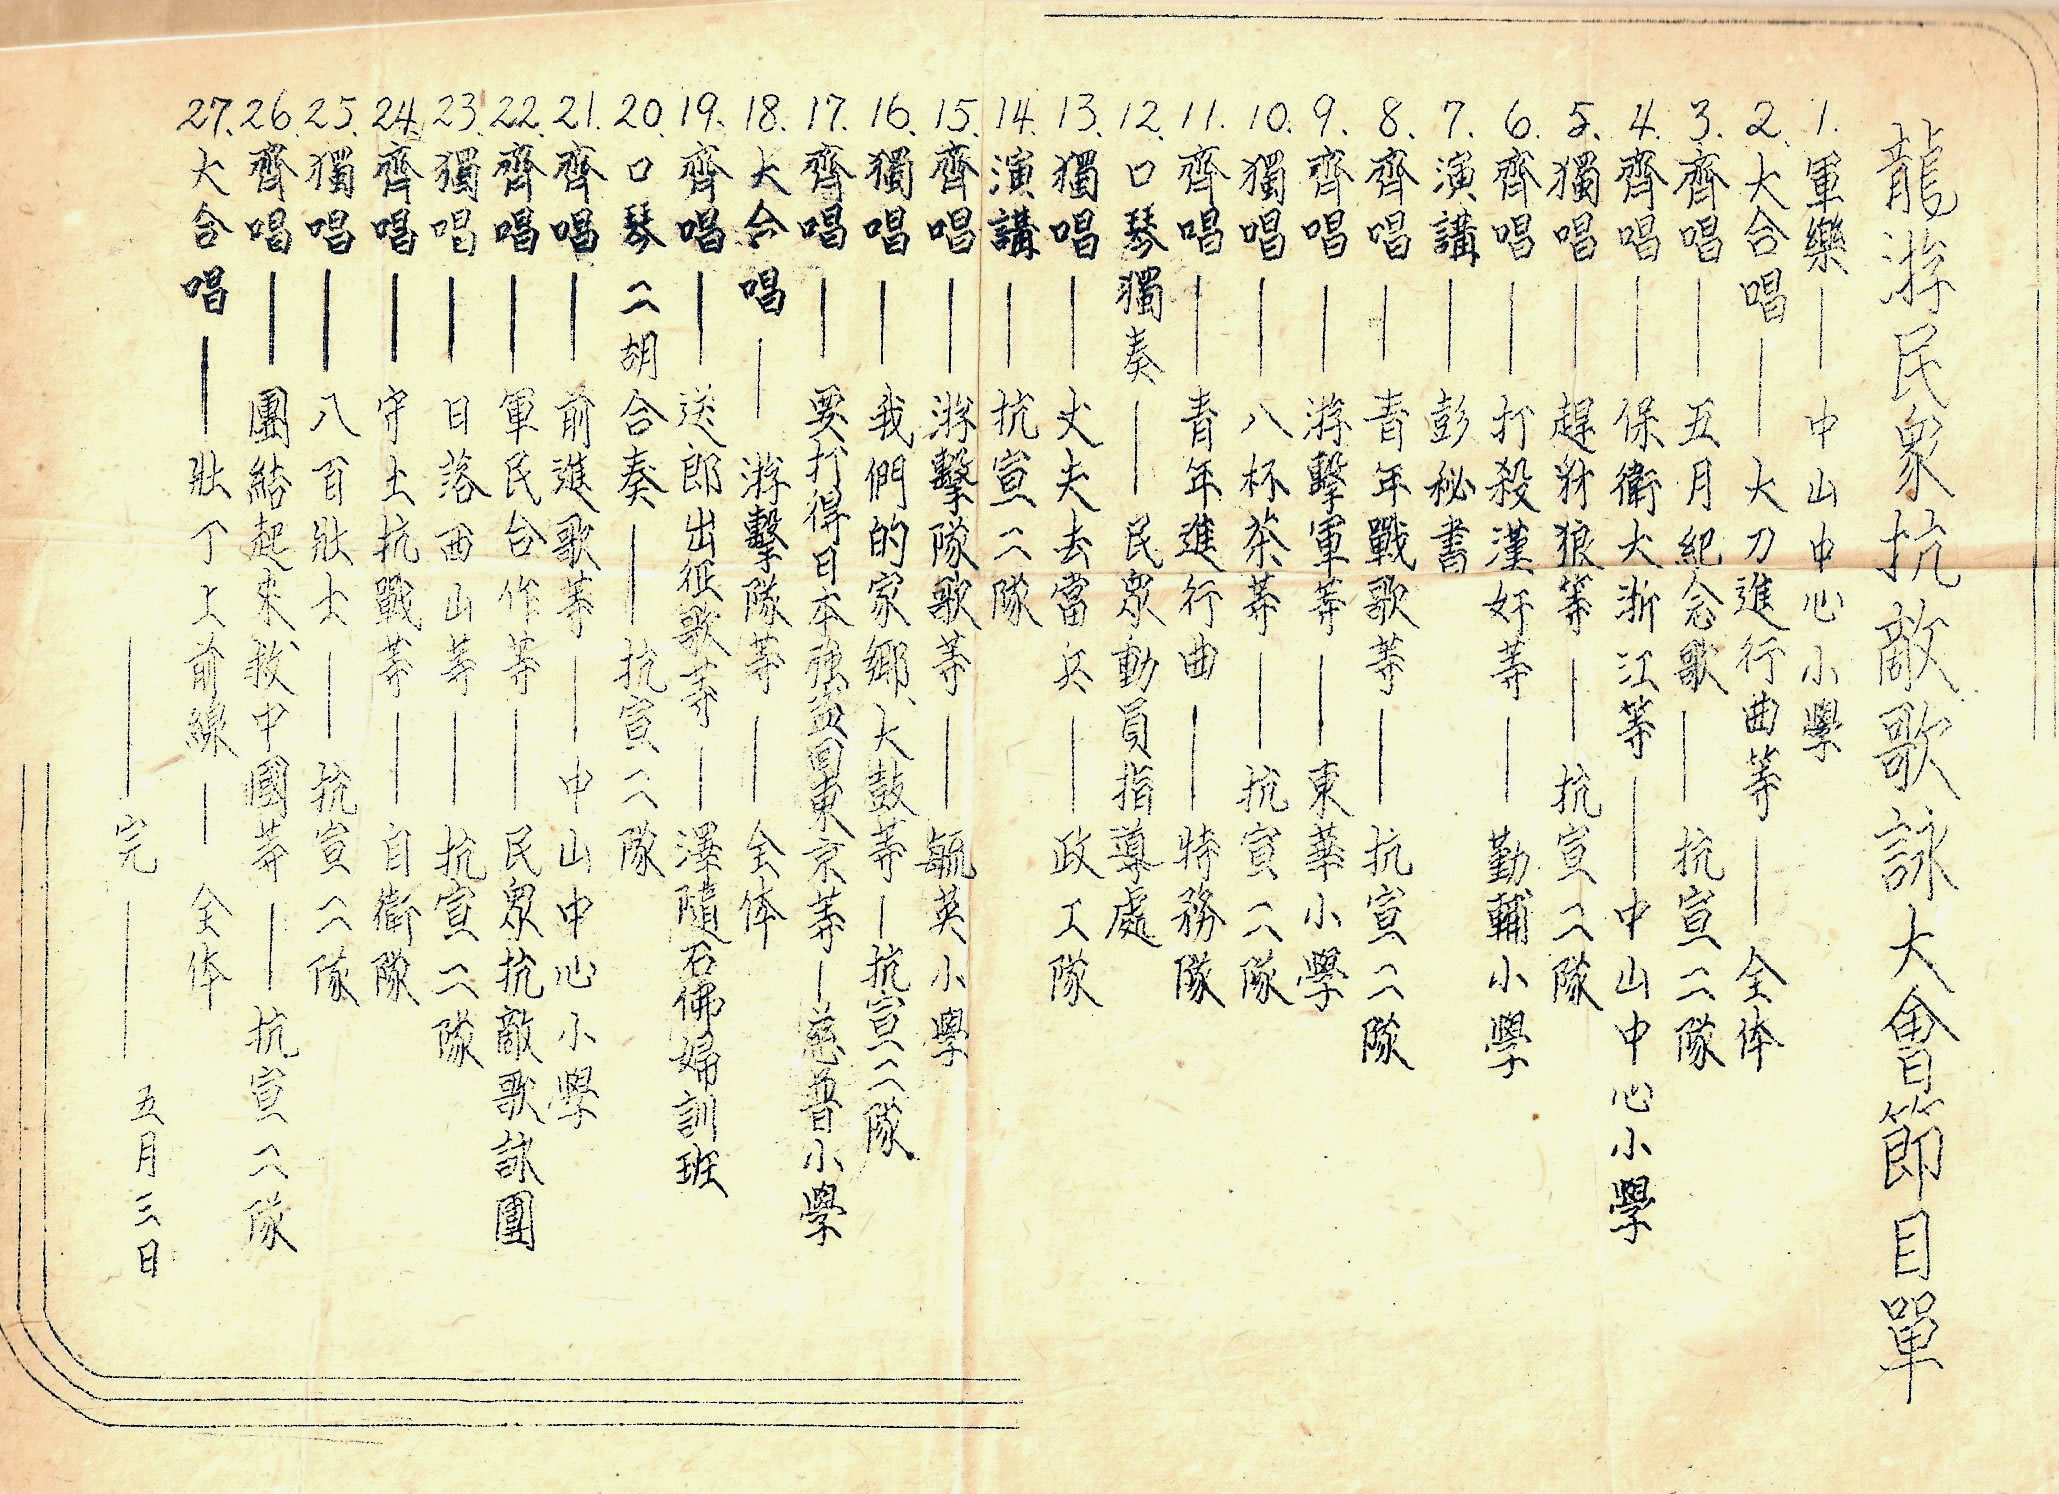 龍游民眾抗敵歌詠大會節目單
1.軍樂——中山中心小學
2.大合唱——大刀進行曲等——全体
3.齊唱——五月紀念歌——抗宣二隊
4.齊唱——保衛大浙江等——中山中心小學
5.獨唱——趕豺狼等——抗宣二隊
6.齊唱——打殺漢奸等——勤輔小學
7.演講——彭秘書
8.齊唱——青年戰歌等——抗宣二隊
9.齊唱——游擊軍等——東華小學
10.獨唱——八杯茶等——抗宣二隊
11.齊唱——青年進行曲——特務隊
12.口琴獨奏——民眾動員指導處
13.獨唱——丈夫去當兵——政工隊
14.演講——抗宣二隊
15.齊唱——游擊隊歌等——毓英小學
16.獨唱——我們的家鄉、大鼓等—抗宣二隊
17.齊唱——要打得日本強盜回東京等—慈普小學
18.大合唱——游擊隊等——全体
19.齊唱——送郎出征歌等——澤隨石佛婦訓班
20.口琴二胡合奏——抗宣二隊
21.齊唱——前進歌等——中山中心小學
22.齊唱——軍民合作等——民眾抗敵歌詠團
23.獨唱——日落西山等——抗宣二隊
24.齊唱——守土抗戰等——自衛隊
25.獨唱——八百壯士——抗宣二隊
26.齊唱——團結起來救中國等——抗宣二隊
27.大合唱——壯丁上前線——全体
——完——
五月三日